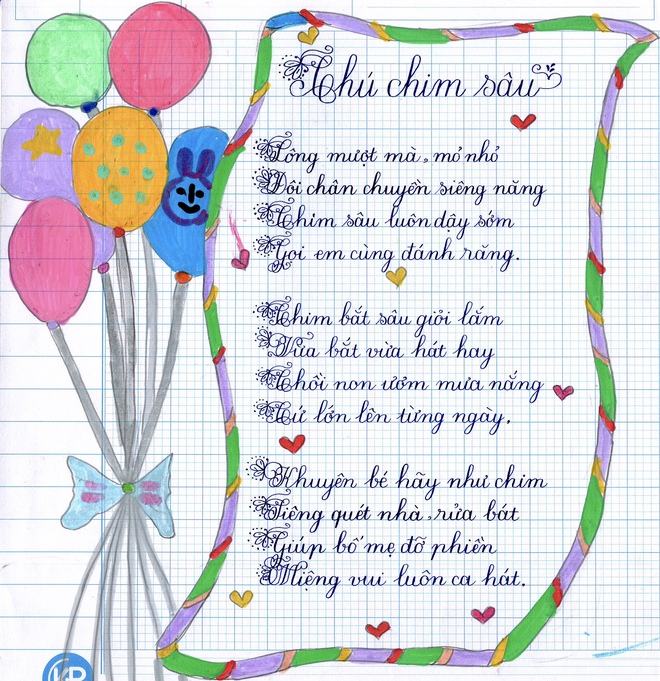 Chú chim sâu
Lông mượt mà, mỏ nhỏ
Đôi chân chuyền siêng năng
Chim sâu luôn dậy sớm
Gọi em cùng đánh răng.
Chim bắt sâu giỏi lắm
Vừa bắt vừa hát hay
Chồi non ươm mưa nắng
Cứ lớn lên từng ngày.
Khuyên bé hãy như chim
Siêng quét nhà, rửa bát
Giúp bố mẹ đỡ phiền
Miệng vui luôn ca hát.